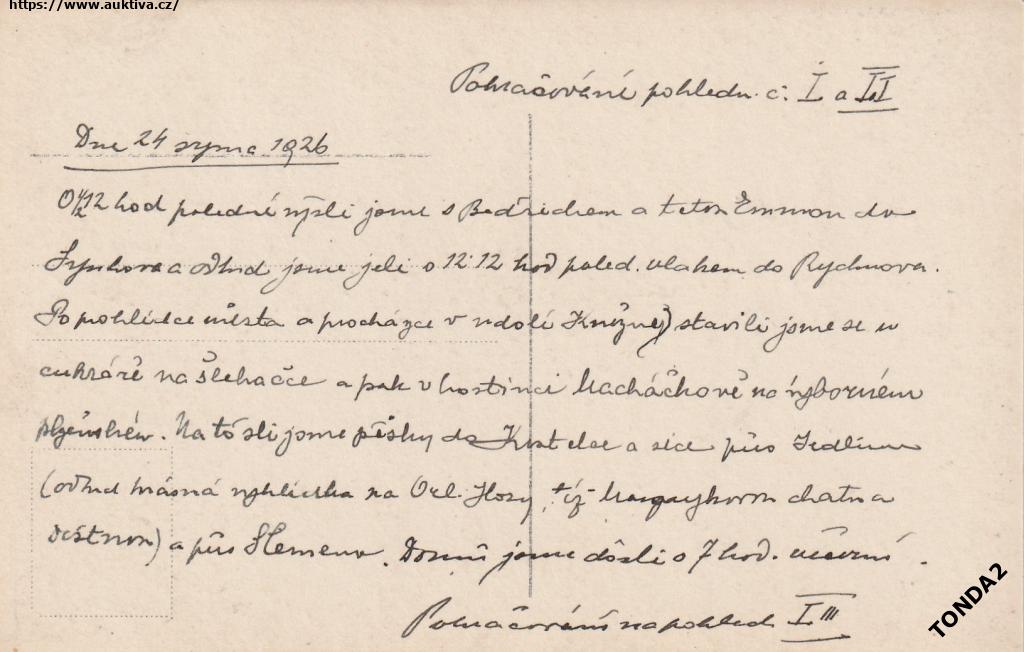 https://www.auktiva.cz/
Pokračování pohledu č. I a II
Dne 24 srpna 1926
O 1/2 12 hod polední vyšli jsme s Bedřichem a tetou Emmou do
a odtud jsme jeli o 12:12 hod poled. vlakem do Rychnova.
Po prohlídce města a procházce v údolí Kněžnej) stavili jsme se u
cukráře na šlehačce a pak v hostinci Macháčkově na výborném
plzeňském. Na to šli jsme pěšky do Kostelce a sice přes Jedlinu
(odtud krásná vyhlídka na Orl. Hory, též Masarykovu chatu a
Deštnou) a přes Slemeno. Domů jsme došli o 7 hod. večerní.
Pokračování na pohledu III
TONDA2